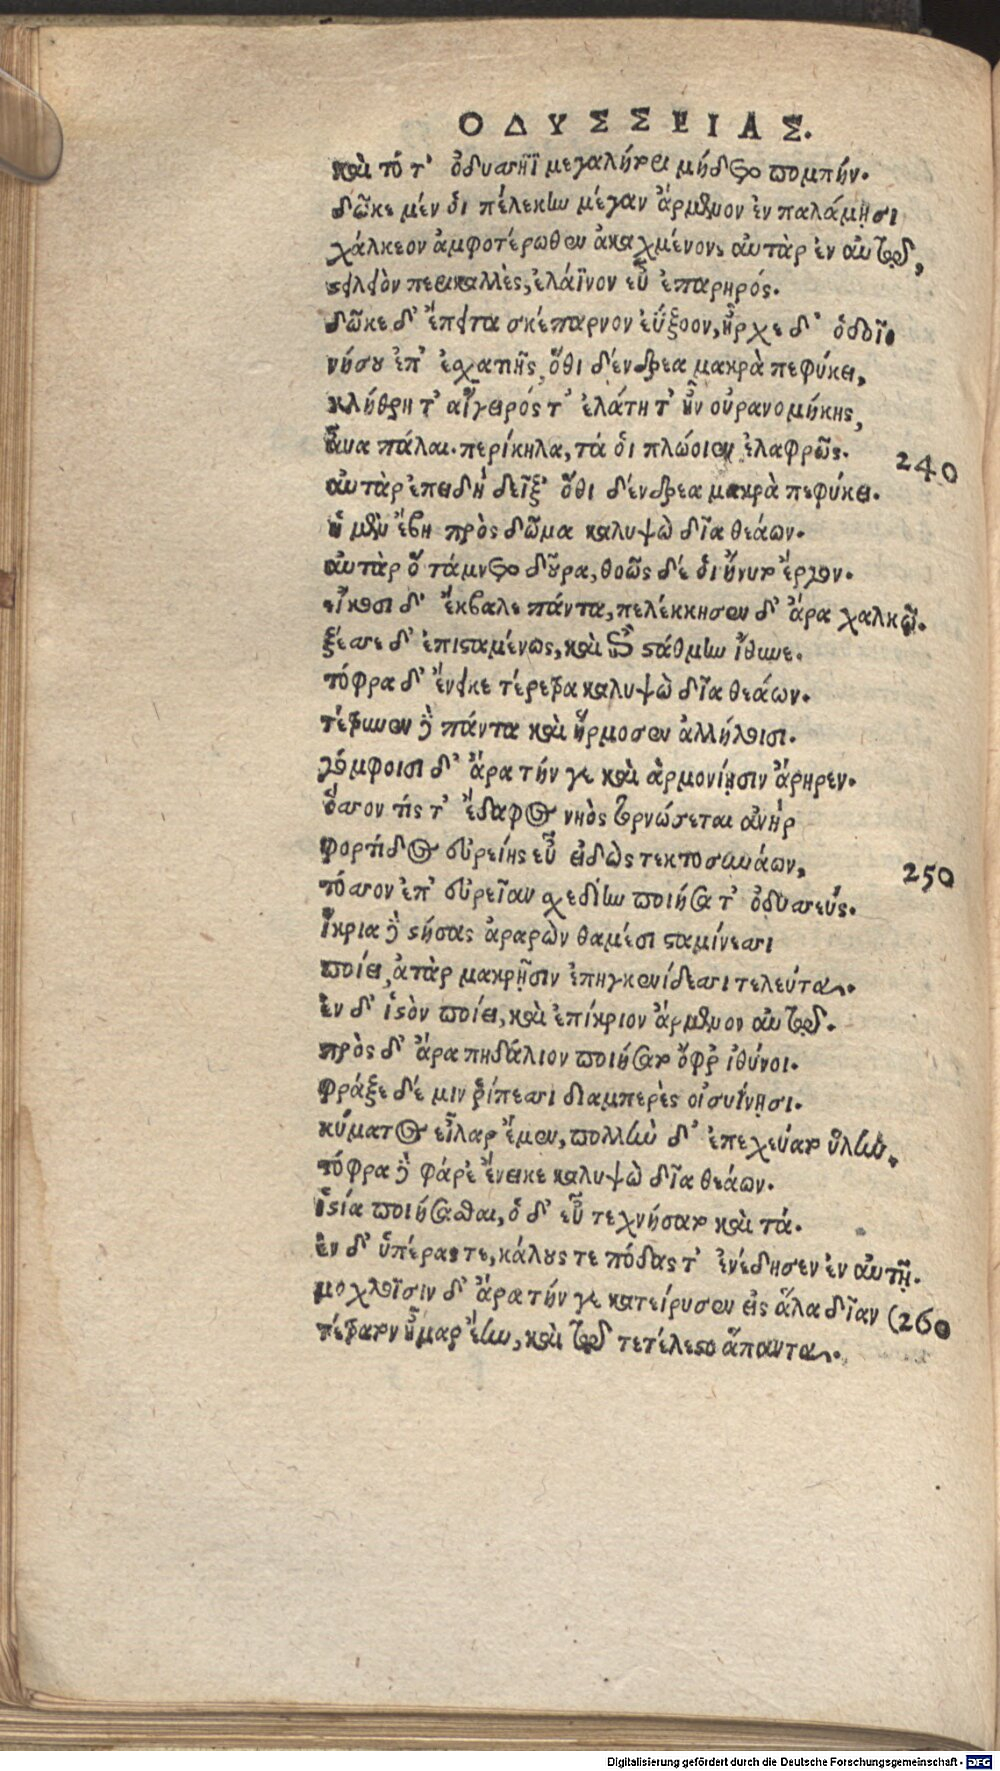 ΟΔΥΣΣΕΙΑΣ.
καὶ τό τ' ὀδυσσῆϊ μεγαλήτορι μήδετο πομπήν.
δῶκε μέν ὁι πέλεκυν μέγαν ἄρμενον ἐν παλάμῃσι
χάλκεον ἀμφοτέρωθεν ἀκαχμένον, αὐτὰρ ἐν αὐτῷ,
στειλειὸν περικαλλὲς, ἐλάϊνον εὖ ἐπαρηρός.
δῶκε δ' ἔπειτα σκέπαρνον ἐΰξοον, ἦρχε δ' ὁδοῖο
νήσου ἐπ' ἐσχατιῆς, ὅθι δένδρεα μακρὰ πεφύκει,
κλήθρη τ' αἴγειρός τ' ἐλάτη τ' ἦν οὐρανομήκης,
ἄυα πάλαι. περίκηλα, τά ὁι πλώοιεν ἐλαφρῶς. 240
αὐτὰρ ἐπειδὴ δεῖξ' ὅθι δένδρεα μακρὰ πεφύκει.
ἡ μὲν ἔβη πρὸς δῶμα καλυψὼ δῖα θεάων.
αὐτὰρ ὅ τάμνετο δοῦρα, θοῶς δέ ὁι ἤνυτο ἔργον.
εἴκοσι δ' ἔκβαλε πάντα, πελέκκησεν δ' ἄρα χαλκῷ.
ξέσσε δ' ἐπισταμένως, καὶ ἐπὶ στάθμην ἴθυνε.
τόφρα δ' ἔνεικε τέρετρα καλυψὼ δῖα θεάων.
τέτρηνεν δ' ἄρα πάντα καὶ ἥρμοσεν ἀλλήλοισι.
γόμφοισι δ' ἄρα τήν γε καὶ ἁρμονίῃσιν ἄρηρεν.
ὅσσον τίς τ' ἔδαφος νηὸς τορνώσεται ἀνὴρ
φορτίδος εὐρείης εὖ εἰδὼς τεκτοσυνάων, 250
τόσσον ἐπ' εὐρεῖαν σχεδίην ποιήσατ' ὀδυσσεύς.
ἴκρια δὲ στήσας ἀραρὼν θαμέσι σταμίνεσσι
ποίει, ἀτὰρ μακρῇσιν ἐπηγκενίδεσσι τελεύτα.
ἐν δ' ἱστὸν ποίει, καὶ ἐπίκριον ἄρμενον αὐτῷ.
πρὸς δ' ἄρα πηδάλιον ποιήσατο ὄφρ' ἰθύνοι.
φράξε δέ μιν ῥίπεσσι διαμπερὲς οἰσυΐνῃσι.
κύματος εἶλαρ ἔμεν, πολλὴν δ' ἐπεχεύατο ὕλην.
τόφρα δὲ φάρε' ἔνεικε καλυψὼ δῖα θεάων.
ἱστία ποιήσασθαι, ὁ δ' εὖ τεχνήσατο καὶ τά.
ἐν δ' ὑπέρας τε, κάλους τε πόδας τ' ἐνέδησεν ἐν αὐτῇ.
μοχλοῖσιν δ' ἄρα τήν γε κατείρυσεν εἰς ἅλα δῖαν (260
τέτρατον ἦμαρ ἔην, καὶ τῷ τετέλεστο ἅπαντα.
Digitalisierung gefördert durch die Deutsche Forschungsgemeinschaft - DFG